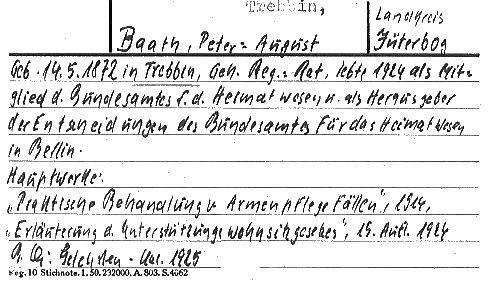 Trebbin,
Landkreis
Baath, Peter = August
Jüterbog
Geb. 14.5.1872 in Trebbin, Geh. Reg. = Rat, lebt, 1924 als Mit=
glied d. Bundesamtes f. d. Heimatwesen u. als Herausgeber
der Entscheidungen des Bundesamtes für das Heimatwesen
in Berlin.
Hauptwerke:
„Praktische Behandlung v. Armenpflege Fällen", 1914,
„Erläuterung d. Unterstützungswohnsitzgesetzes", 15. Aufl. 1924
Gelehrten - 1925
Reg. 10 Stichnote. 1. 50. 232000, A. 803. S. 4662